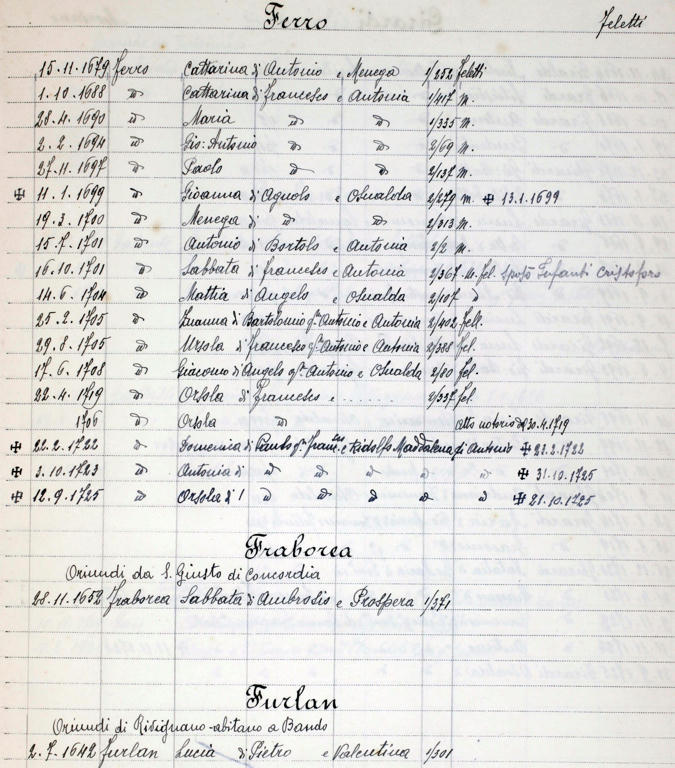 Ferro
Feletti
15.11.1679 Ferro Cattarina di Antonio e Menega 1/252 Feletti
1.10.1688 " Cattarina di francesco e Antonia 1/417 m.
28.4.1690 " Maria " " 1/335 m.
2.2.1694 " Gio: Antonio " " 2/69 m.
27.11.1697 " Paolo " " 2/137 m.
✠ 11.1.1699 " Giovanna di Agnolo e Osualda 2/279 m. ✠ 13.1.1699
19.3.1700 " Menega di " " 2/313 m.
15.7.1701 " Antonio di Bortolo e Antonia 2/2 m.
16.10.1701 " Sabbata di francesco e Antonia 2/367 m. fel. sposò Infanti Cristoforo
14.6.1704 " Mattia di Angelo e Osualda 2/107 "
25.2.1705 " Zuanna di Bartolomio q.m Antonio e Antonia 2/402 Fell.
29.8.1705 " Ursola di francesco q.m Antonio e Antonia 2/388 fel.
17.6.1708 " Giacomo di Angelo q.m Antonio e Osualda 2/80 fel.
22.4.1719 " Orsola di francesco e ...... 2/337 fel.
1706 " Orsola " atto notorio di 30.4.1719
✠ 22.2.1722 " Domenica di q.m e Ridolfo Maddalena di Antonio ✠ 22.2.1722
✠ 3.10.1723 " Antonia di " " " " " ✠ 31.10.1725
✠ 12.9.1725 " Orsola di " " " " ✠ 21.10.1725
Fraborea
Oriundi da S. Giusto di Concordia
28.11.1652 Fraborea Sabbata di Ambrosio e Prospera 1/371
Furlan
Oriundi di Rivignano - abitano a Bando
2.7.1642 Furlan Lucia di Pietro e Valentina 1/301